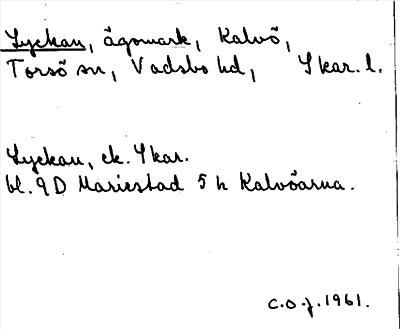 Lyckan, ägomark, Kalvö,
Torsö sn, Vadsbo hd, Skar. l.
Lyckan, ek. Skar.
bl. 9D Mariestad 5 h Kalvöarna.
C.O.J. 1961.